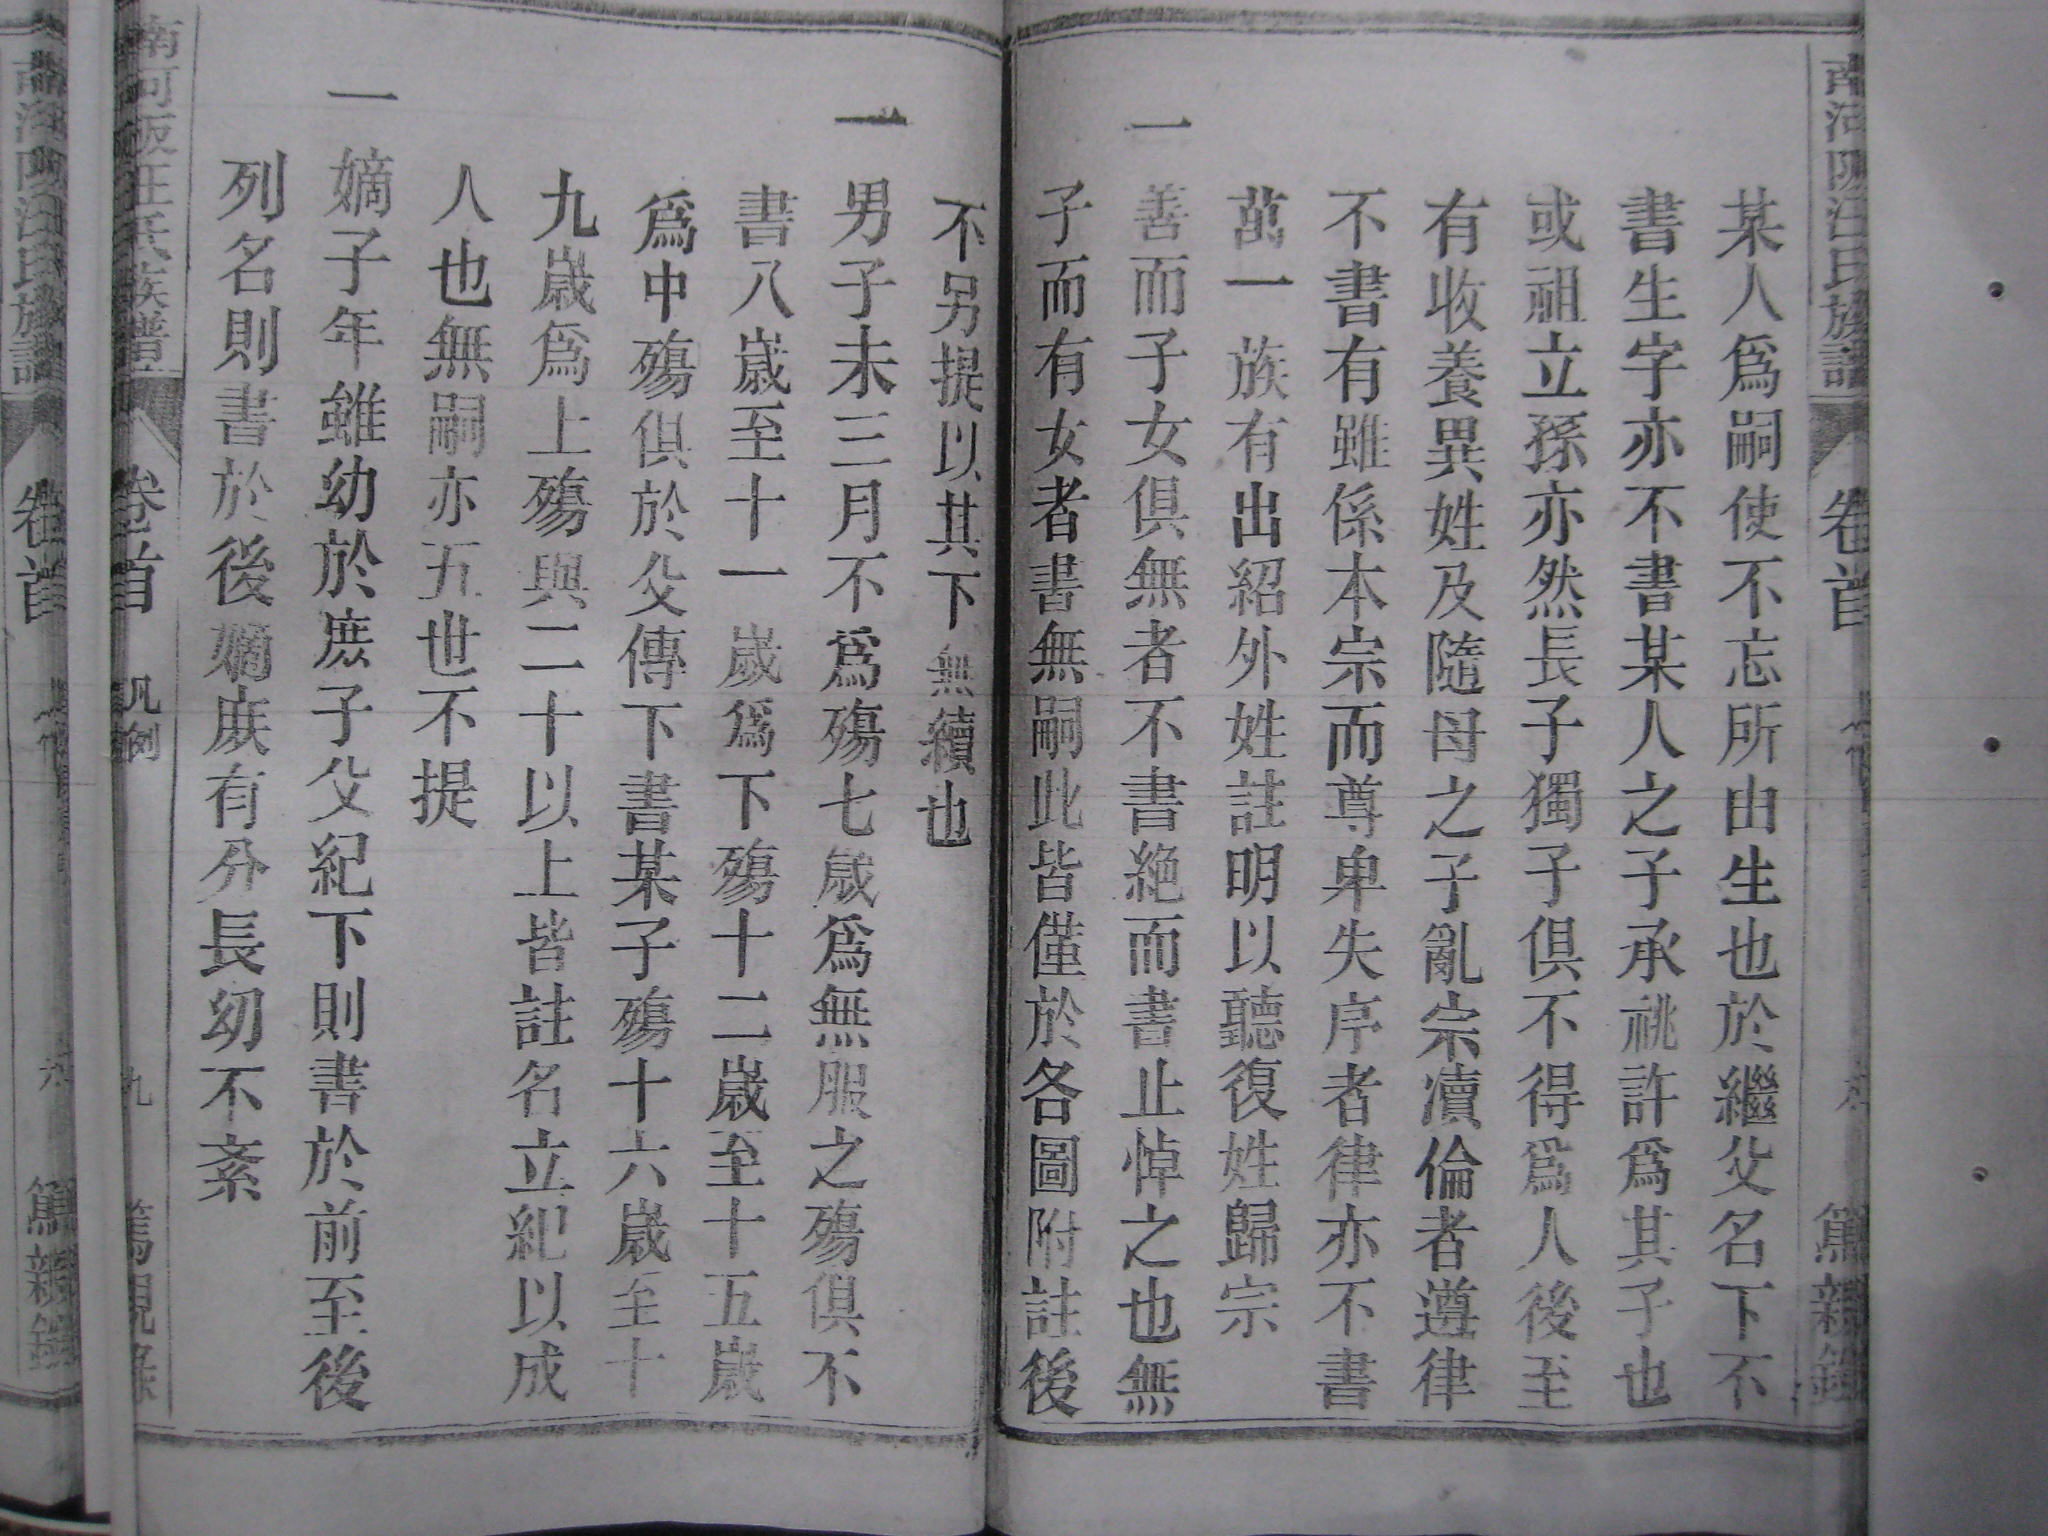 某人爲嗣使不忘所由生也於繼父名下不
書生字亦不書某人之子承祧許爲其子也
或祖立孫亦然長子獨子俱不得爲人後至
有收養異姓及隨母之子亂宗瀆倫者遵律
不書有雖係本宗而尊卑失序者律亦不書
萬一族有出紹外姓註明以聽復姓歸宗
一善而子女俱無者不書絶而書止悼之也無
子而有女者書無嗣此皆僅於各圖附註後
不另提以其下無續也
一男子未三月不爲殤七歲爲無服之殤俱不
書八歲至十一歲爲下殤十二歲至十五歲
爲中殤俱於父傳下書某子殤十六歲至十
九歲爲上殤與二十以上皆註名立紀以成
人也無嗣亦五世不提
一嫡子年雖幼於庶子父紀下則書於前至後
列名則書於後嫡庶有分長幼不紊
南河阪汪氏族譜 卷首 凡例 九 篤親錄